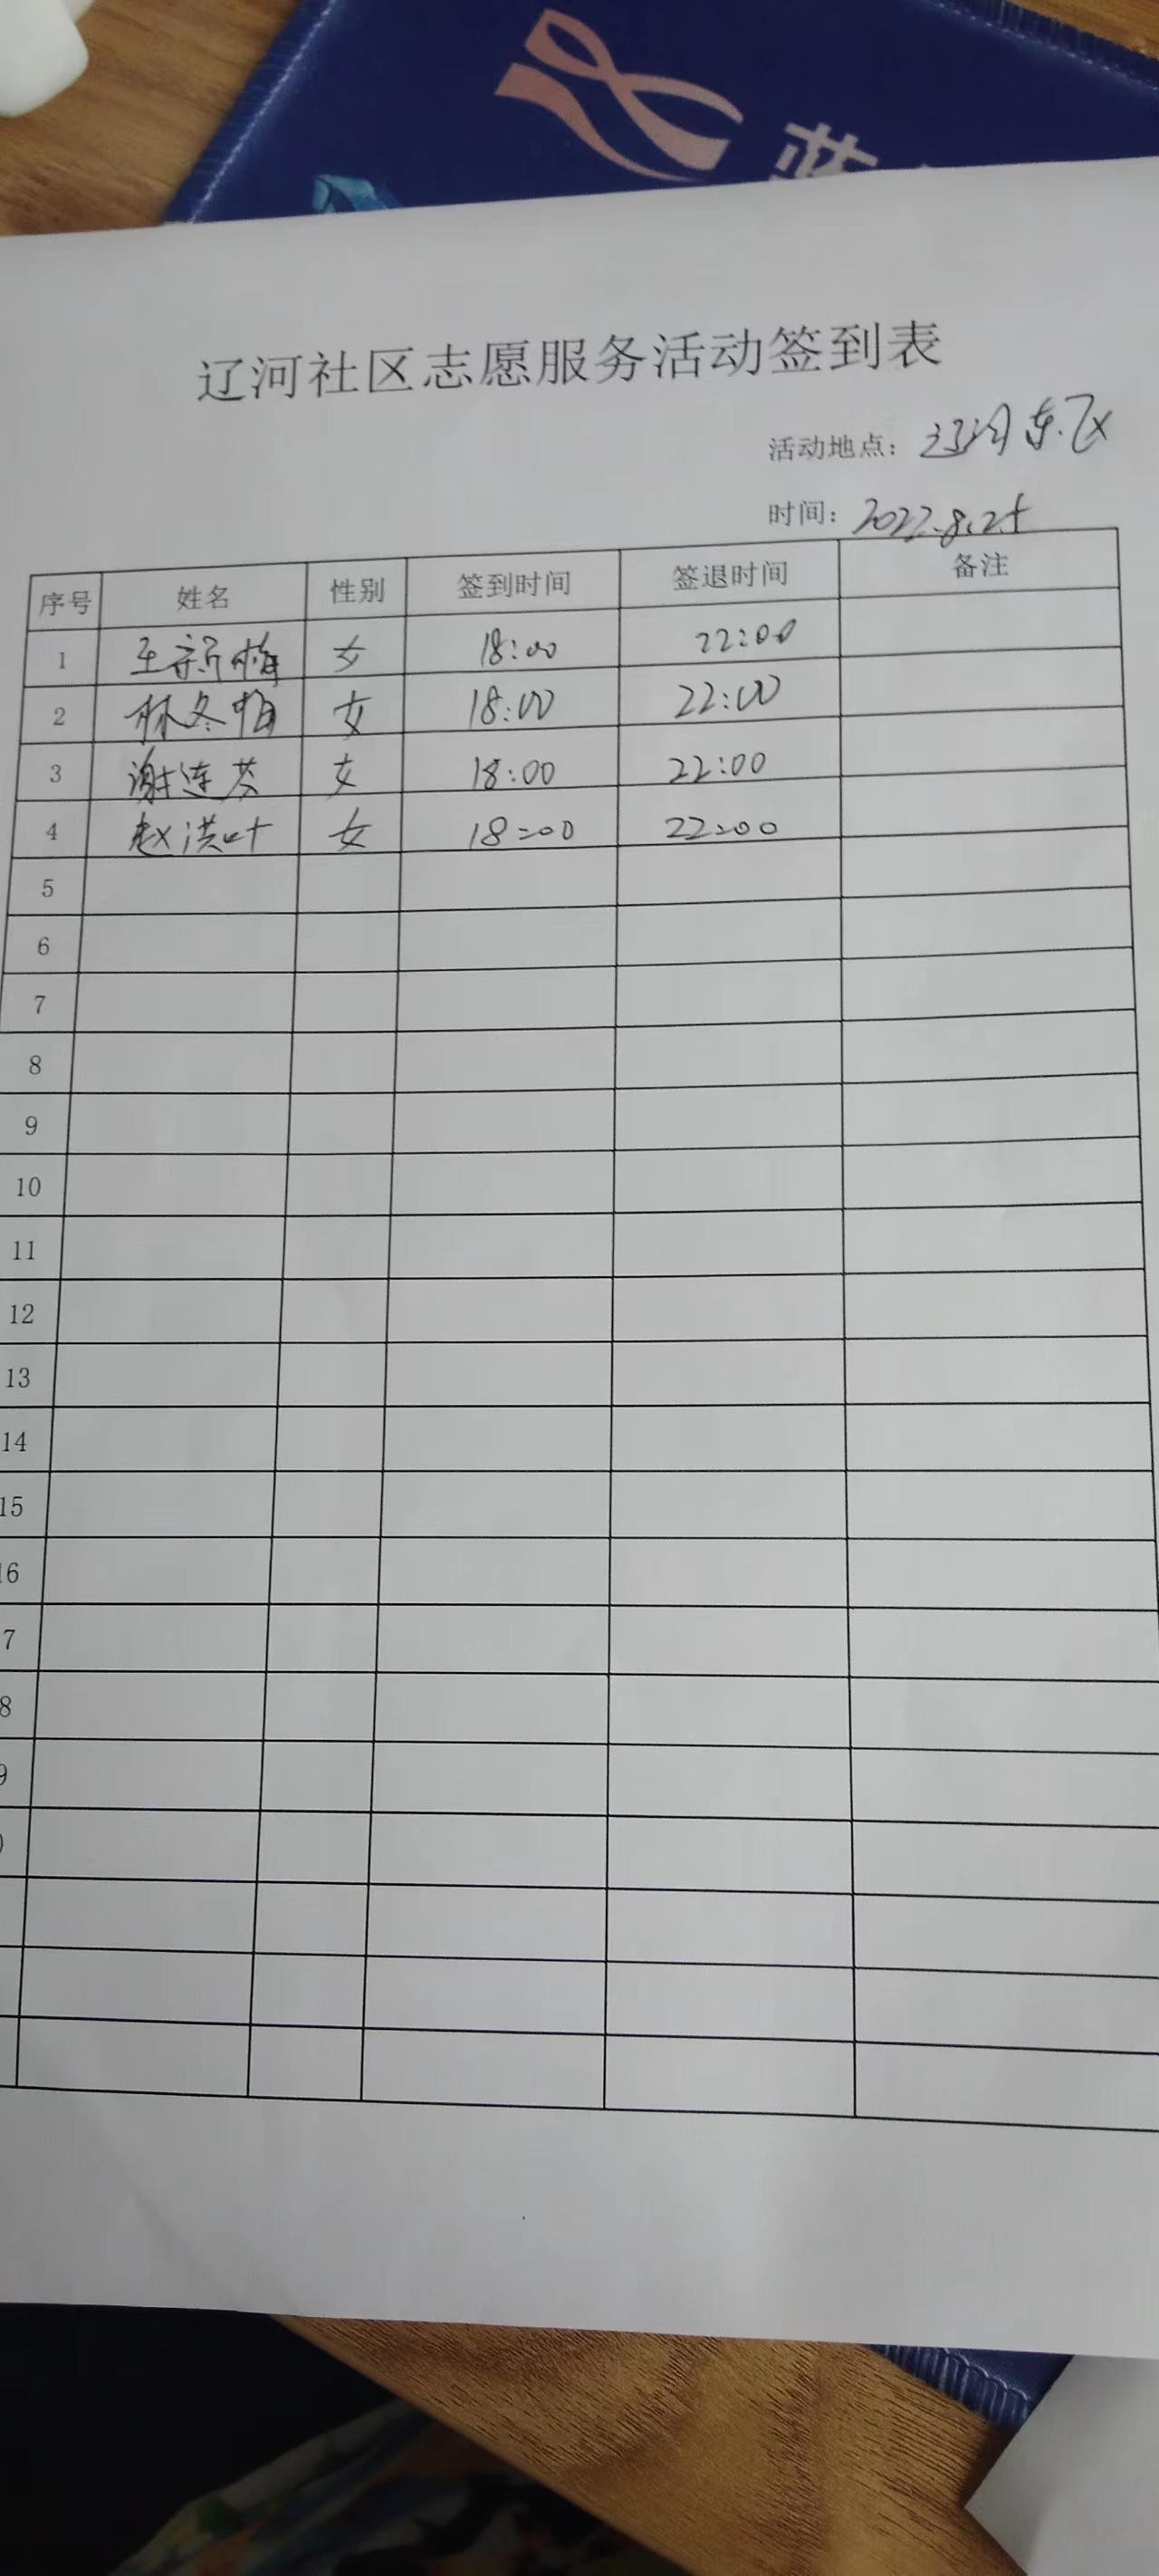 蓝
辽河社区志愿服务活动签到表
活动地点：辽河东区
时间：2022.8.25
序号 姓名 性别 签到时间 签退时间 备注
1 王新梅 女 18:00 22:00
2 林冬梅 女 18:00 22:00
3 谢连芬 女 18:00 22:00
4 赵洪叶 女 18:00 22:00
5
6
7
8
9
10
11
12
13
14
15
16
7
8
9